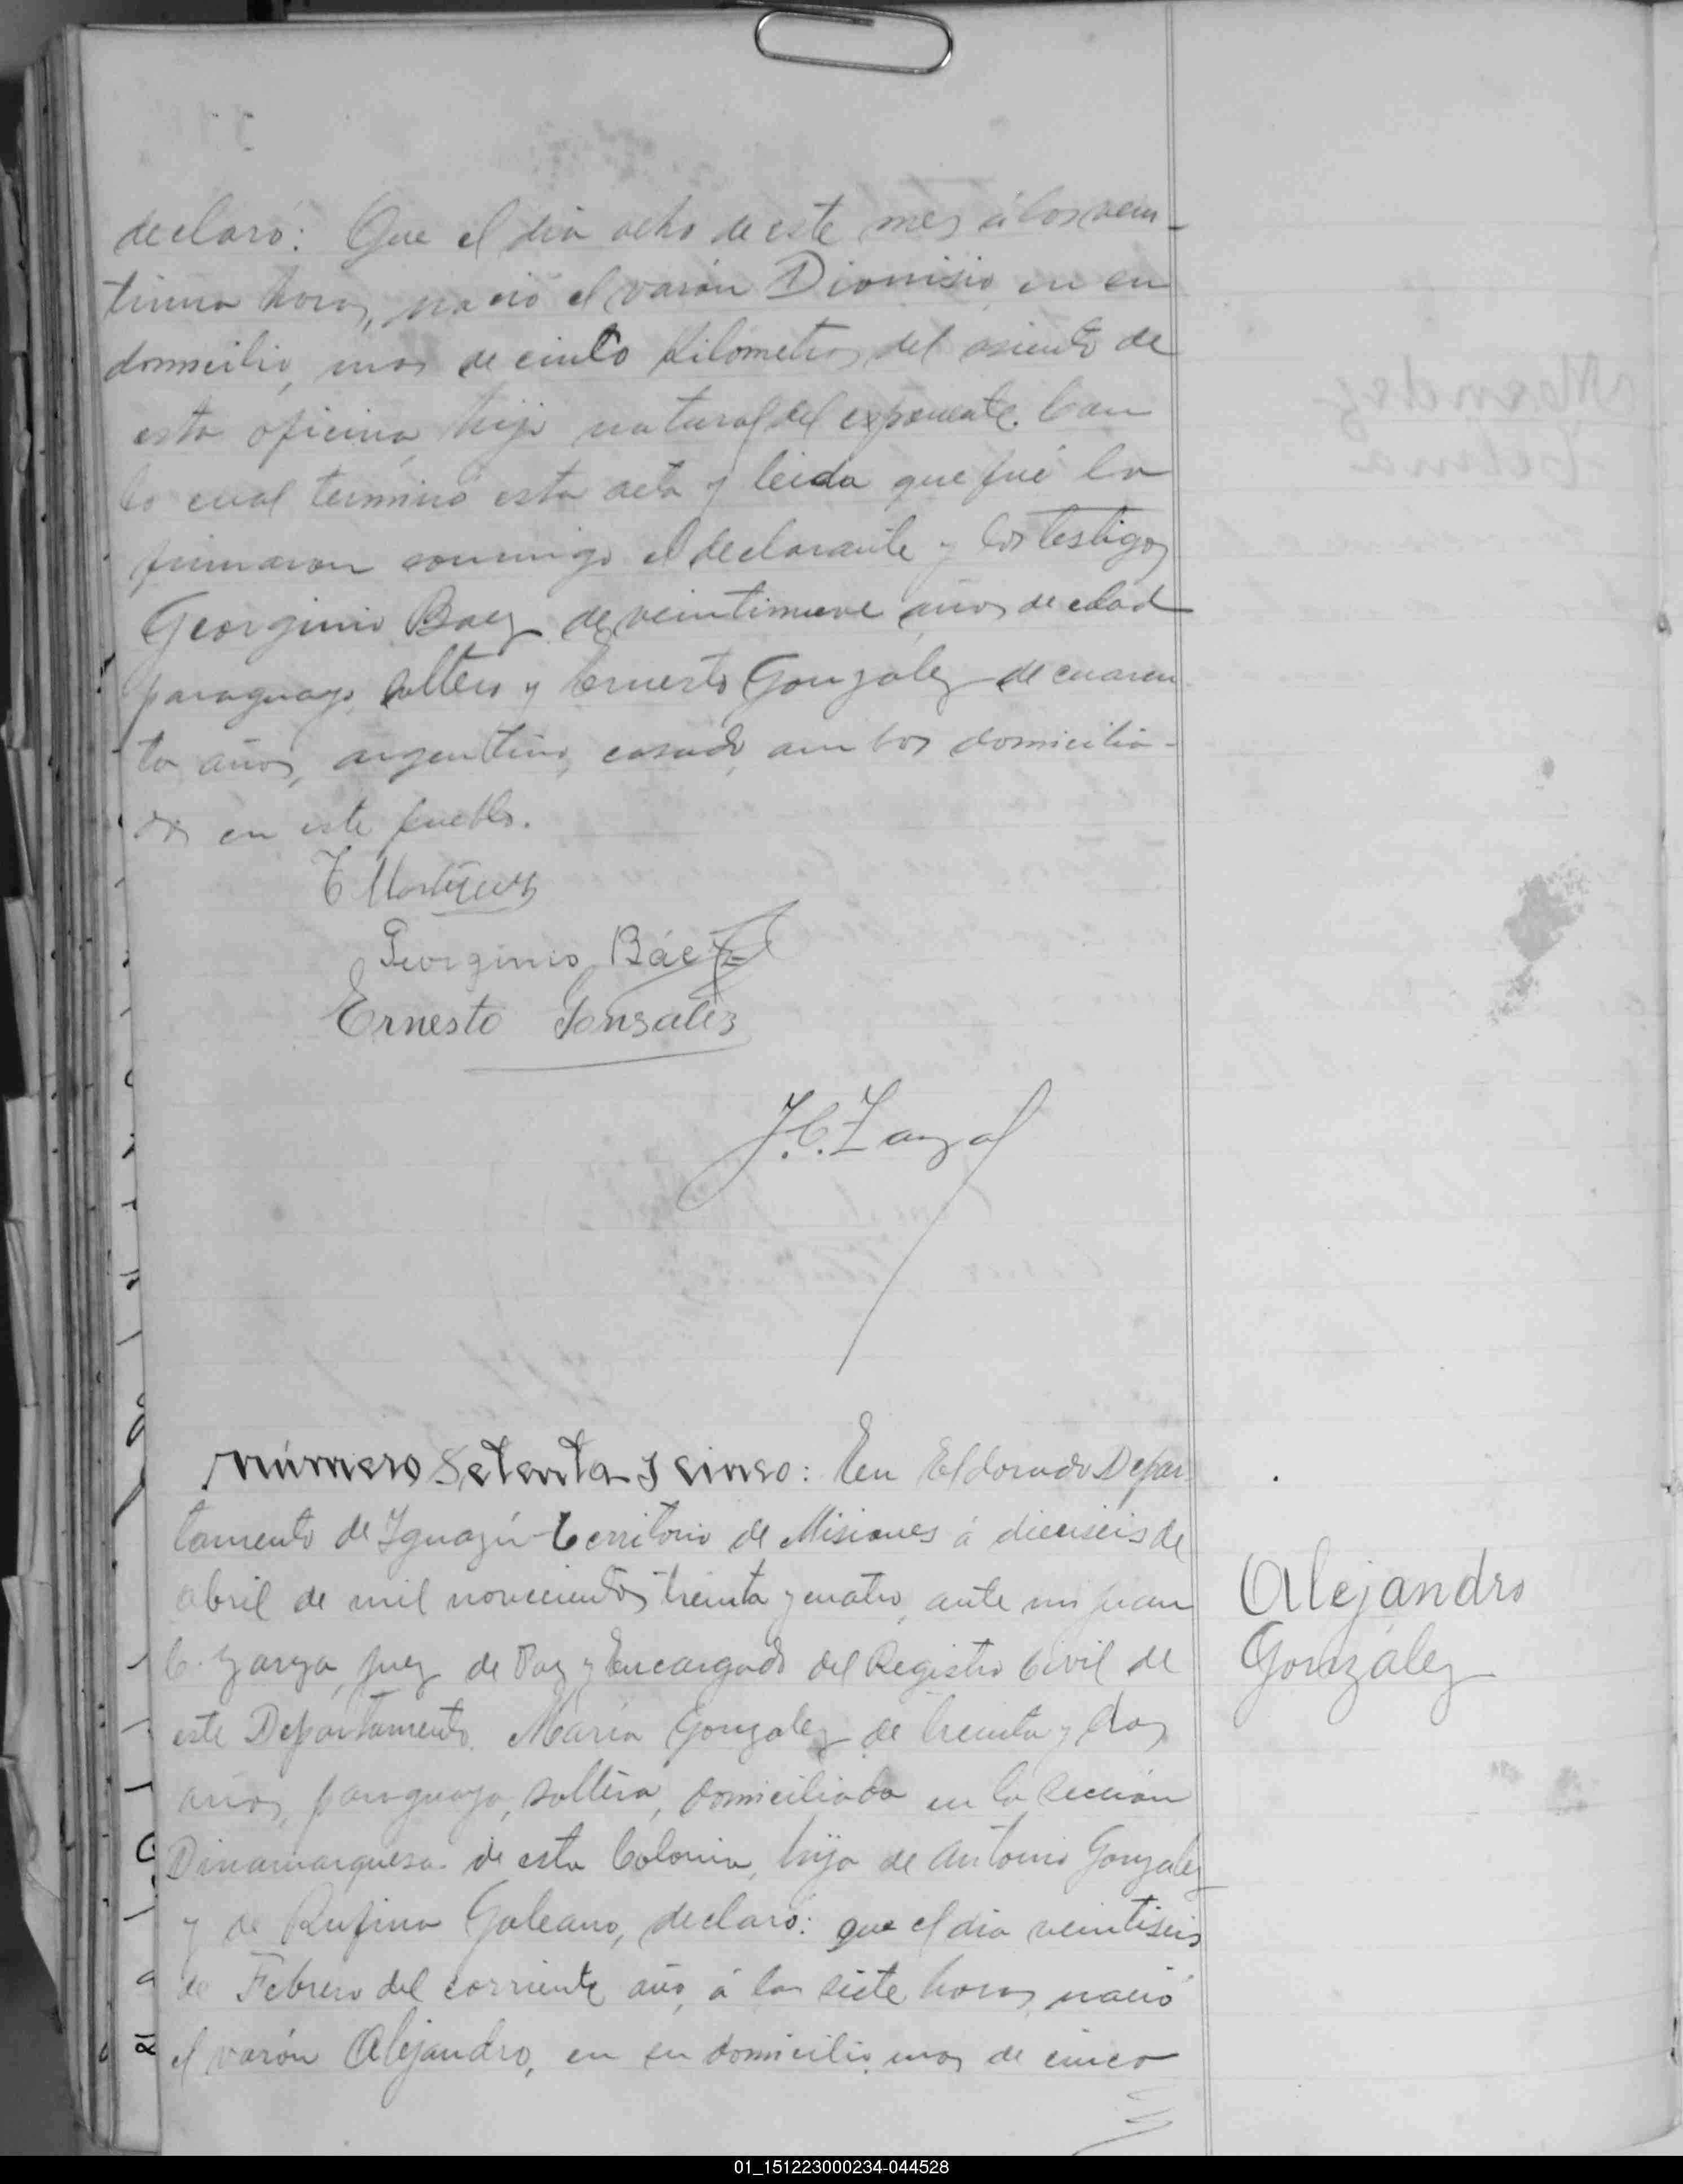 declaró: Que el dia ocho de este mes á las vein-
tiuna horas, nació el varón Dionisio, en su
domicilio, mas de cinco Kilometros del asiento de
esta oficina, hijo natural del exponente. Con
lo cual terminó esta acta y leida que fué la
firmaron conmigo el declarante y los testigos
Georginio Baez de veintinueve años de edad
paraguayo, soltero y Ernesto Gonzalez de cuaren
ta años, argentino, casado, ambos domicilia-
dos en este pueblo.
Georginio Báez
Ernesto Gonsalez
J.C. Zarza
número Setenta y cinco: En Eldorado Depar
tamento de Iguazú Territorio de Misiones á dieciseis de
abril de mil novecientos treinta y cuatro, ante mi Juan
C. Zarza, Juez de Paz y Encargado del Registro Civil de
este Departamento. Maria Gonzalez de treinta y dos
años, paraguaya, soltera, domiciliada en la sección
Dinamarquesa de esta Colonia, hija de Antonio Gonzalez
y de Rufina Galeano, declaró: que el dia veintiseis
de Febrero del corriente año, á las siete horas, nació
el varón Alejandro, en su domicilio, mas de cinco
Alejandro
González
01_151223000234-044528